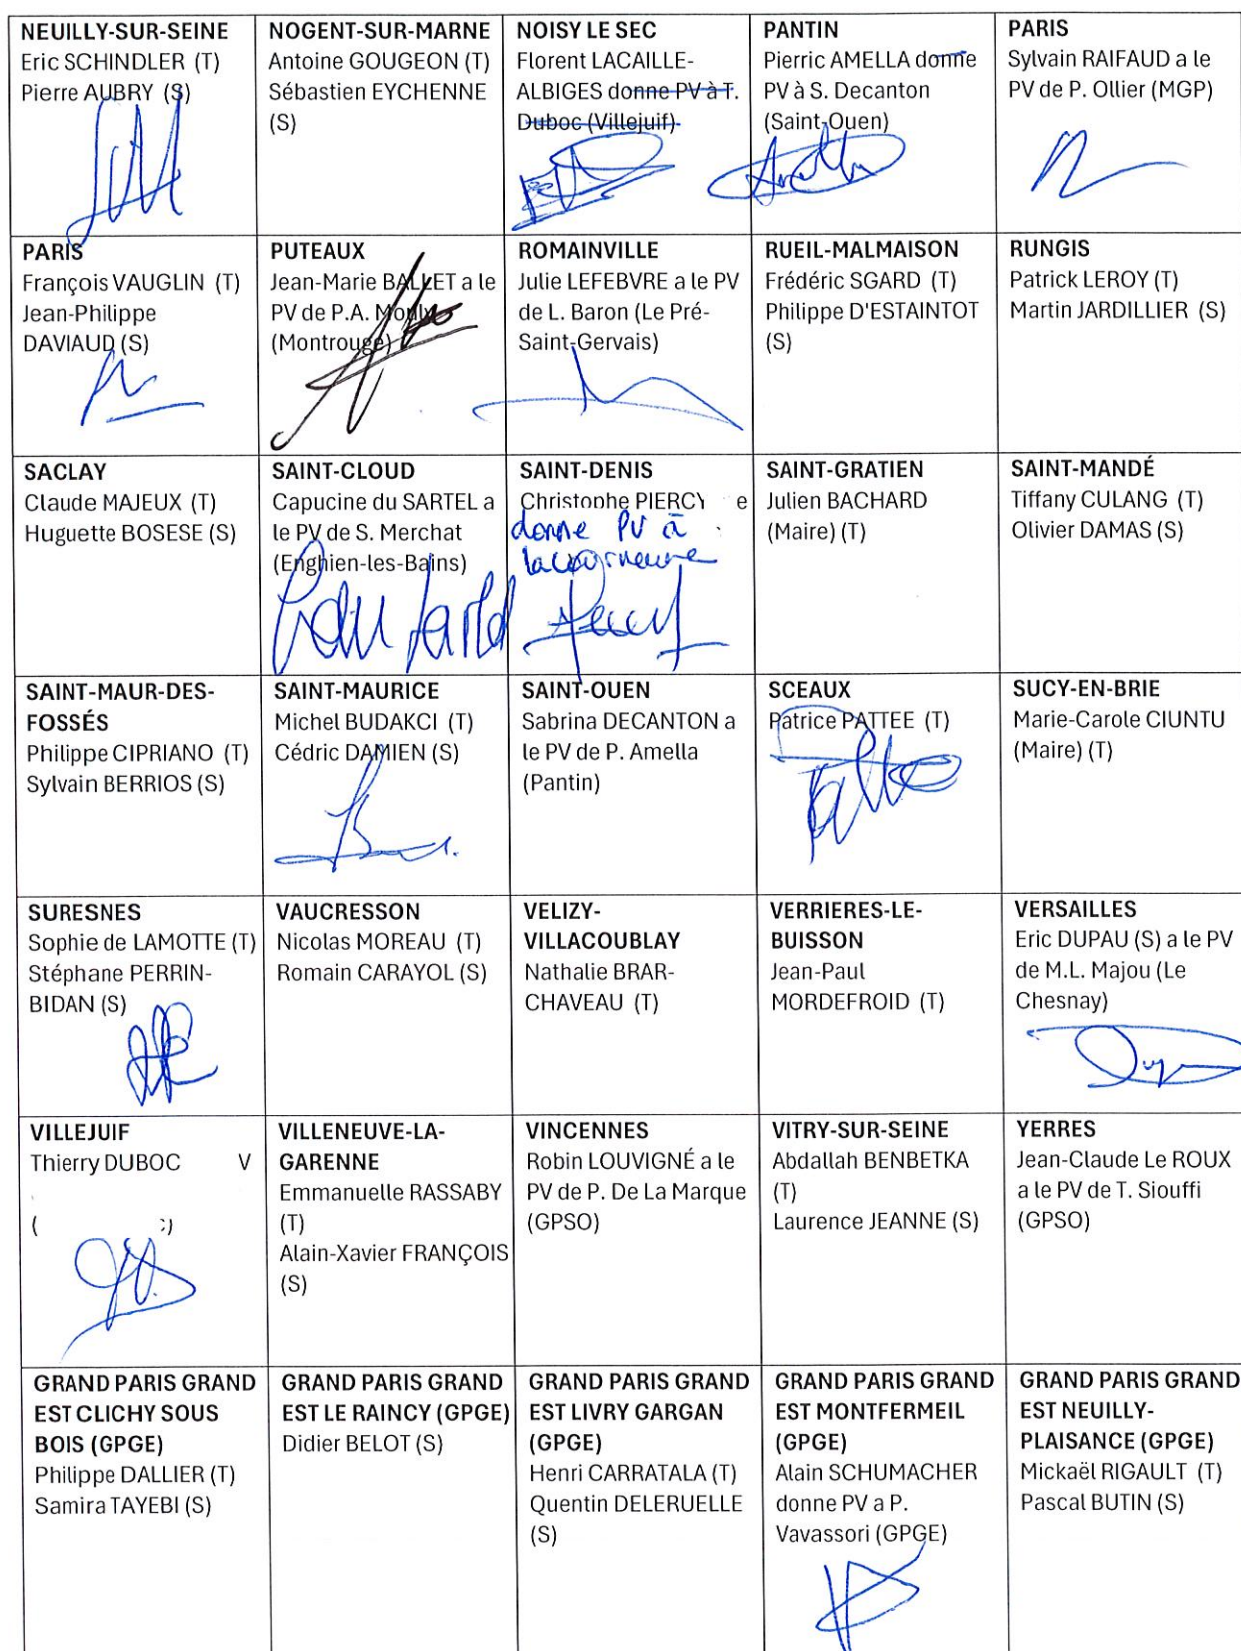 NEUILLY-SUR-SEINE
Eric SCHINDLER (T)
Pierre AUBRY (S)
NOGENT-SUR-MARNE
Antoine GOUGEON (T)
Sébastien EYCHENNE
(S)
NOISY LE SEC
Florent LACAILLE-
ALBIGES donne PV à T.
Duboc (Villejuif)
PANTIN
Pierric AMELLA donne
PV à S. Decanton
(Saint-Ouen)
PARIS
Sylvain RAIFAUD a le
PV de P. Ollier (MGP)
PARIS
François VAUGLIN (T)
Jean-Philippe
DAVIAUD (S)
PUTEAUX
Jean-Marie BALLET a le
PV de P.A. Mouly
(Montrouge)
ROMAINVILLE
Julie LEFEBVRE a le PV
de L. Baron (Le Pré-
Saint-Gervais)
RUEIL-MALMAISON
Frédéric SGARD (T)
Philippe D'ESTAINTOT
(S)
RUNGIS
Patrick LEROY (T)
Martin JARDILLIER (S)
SACLAY
Claude MAJEUX (T)
Huguette BOSESE (S)
SAINT-CLOUD
Capucine du SARTEL a
le PV de S. Merchat
(Enghien-les-Bains)
SAINT-DENIS
Christophe PIERCY e
donne PV à
la courneuve
SAINT-GRATIEN
Julien BACHARD
(Maire) (T)
SAINT-MANDÉ
Tiffany CULANG (T)
Olivier DAMAS (S)
SAINT-MAUR-DES-
FOSSÉS
Philippe CIPRIANO (T)
Sylvain BERRIOS (S)
SAINT-MAURICE
Michel BUDAKCI (T)
Cédric DAMIEN (S)
SAINT-OUEN
Sabrina DECANTON a
le PV de P. Amella
(Pantin)
SCEAUX
Patrice PATTEE (T)
SUCY-EN-BRIE
Marie-Carole CIUNTU
(Maire) (T)
SURESNES
Sophie de LAMOTTE (T)
Stéphane PERRIN-
BIDAN (S)
VAUCRESSON
Nicolas MOREAU (T)
Romain CARAYOL (S)
VELIZY-
VILLACOUBLAY
Nathalie BRAR-
CHAVEAU (T)
VERRIERES-LE-
BUISSON
Jean-Paul
MORDEFROID (T)
VERSAILLES
Eric DUPAU (S) a le PV
de M.L. Majou (Le
Chesnay)
VILLEJUIF
Thierry DUBOC V
VILLENEUVE-LA-
GARENNE
Emmanuelle RASSABY
(T)
Alain-Xavier FRANÇOIS
(S)
VINCENNES
Robin LOUVIGNÉ a le
PV de P. De La Marque
(GPSO)
VITRY-SUR-SEINE
Abdallah BENBETKA
(T)
Laurence JEANNE (S)
YERRES
Jean-Claude Le ROUX
a le PV de T. Siouffi
(GPSO)
GRAND PARIS GRAND
EST CLICHY SOUS
BOIS (GPGE)
Philippe DALLIER (T)
Samira TAYEBI (S)
GRAND PARIS GRAND
EST LE RAINCY (GPGE)
Didier BELOT (S)
GRAND PARIS GRAND
EST LIVRY GARGAN
(GPGE)
Henri CARRATALA (T)
Quentin DELERUELLE
(S)
GRAND PARIS GRAND
EST MONTFERMEIL
(GPGE)
Alain SCHUMACHER
donne PV a P.
Vavassori (GPGE)
GRAND PARIS GRAND
EST NEUILLY-
PLAISANCE (GPGE)
Mickaël RIGAULT (T)
Pascal BUTIN (S)